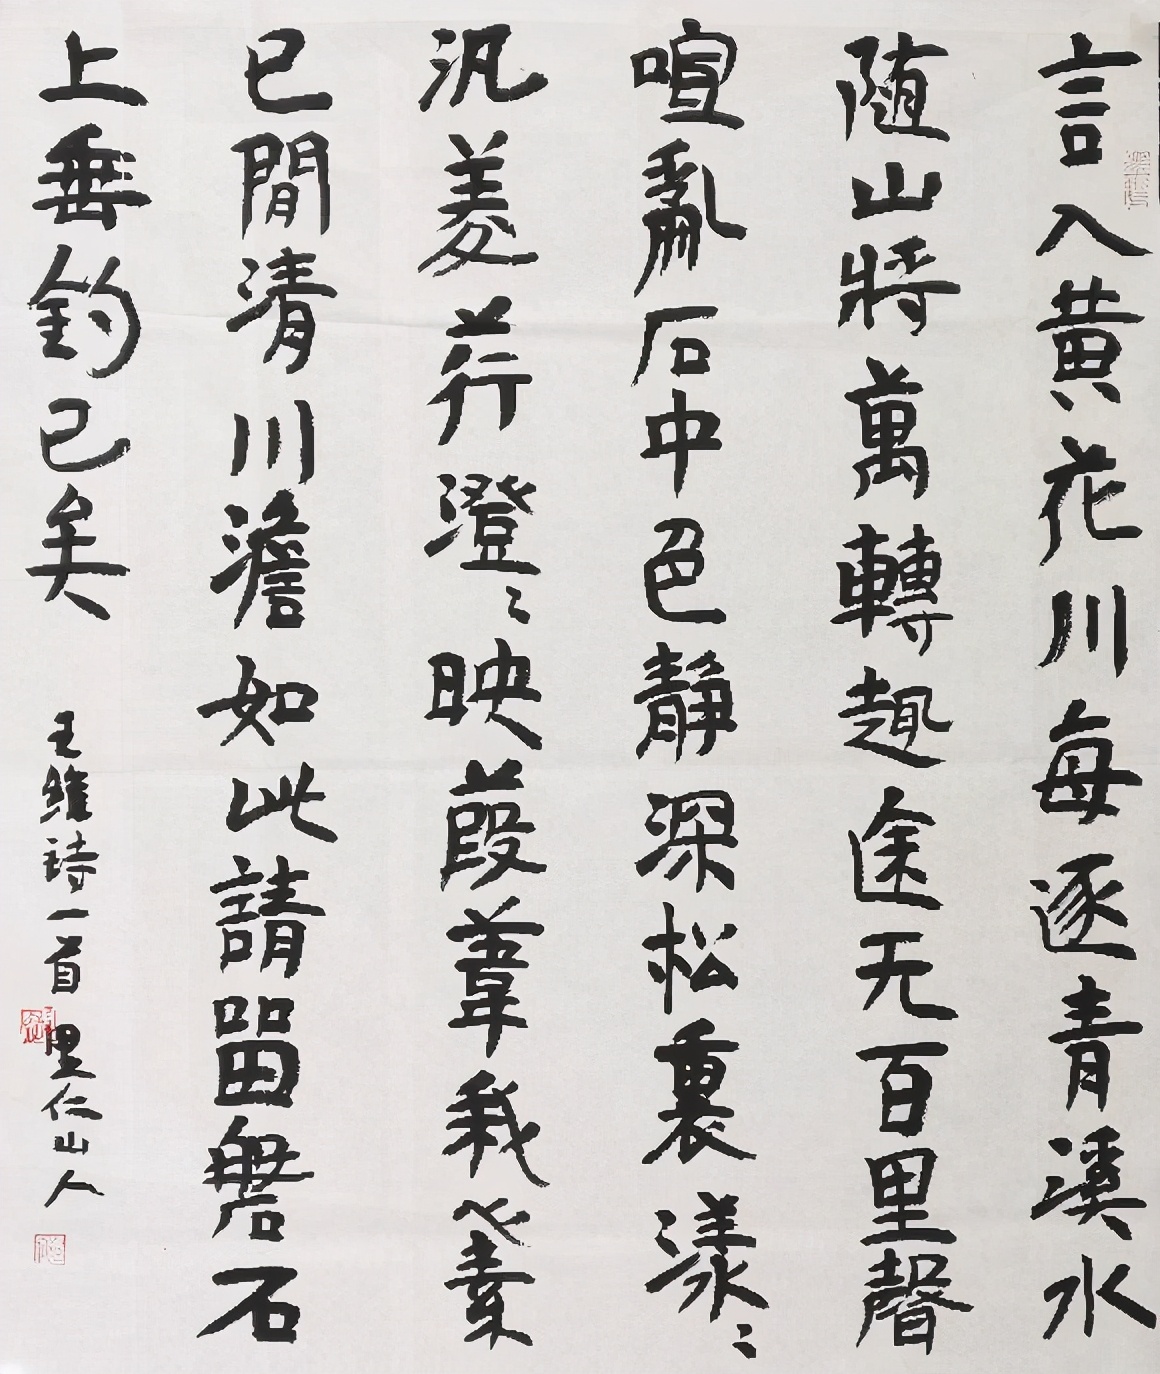 言入黄花川每逐青溪水
随山将萬轉趣途无百里聲
喧亂石中色静深松裏漾〻
汎菱荇澄〻映葭葦我心素
已閒清川澹如此請留盤石
上垂釣已矣
王維詩一首 里仁山人